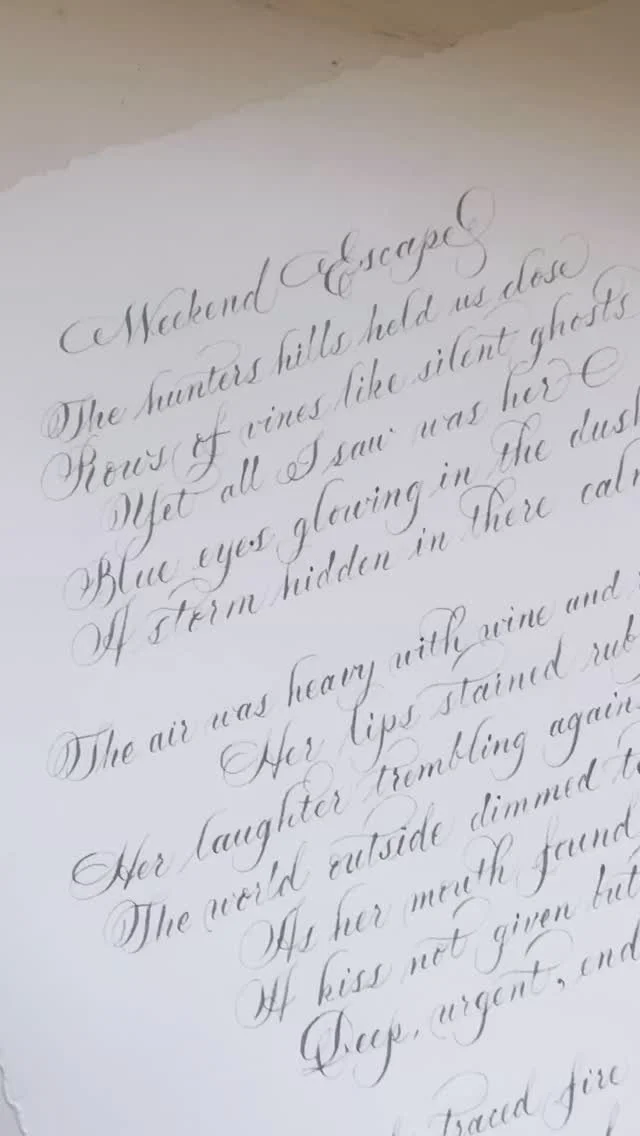 Weekend Escape
The hunters hills held us close
Rows of vines like silent ghosts
Yet all I saw was her
Blue eyes glowing in the dusk
A storm hidden in there calm
The air was heavy with wine and
Her lips stained
Her laughter trembling against
The world outside dimmed to
As her mouth found
A kiss not given but
Deep, urgent,
traced fire